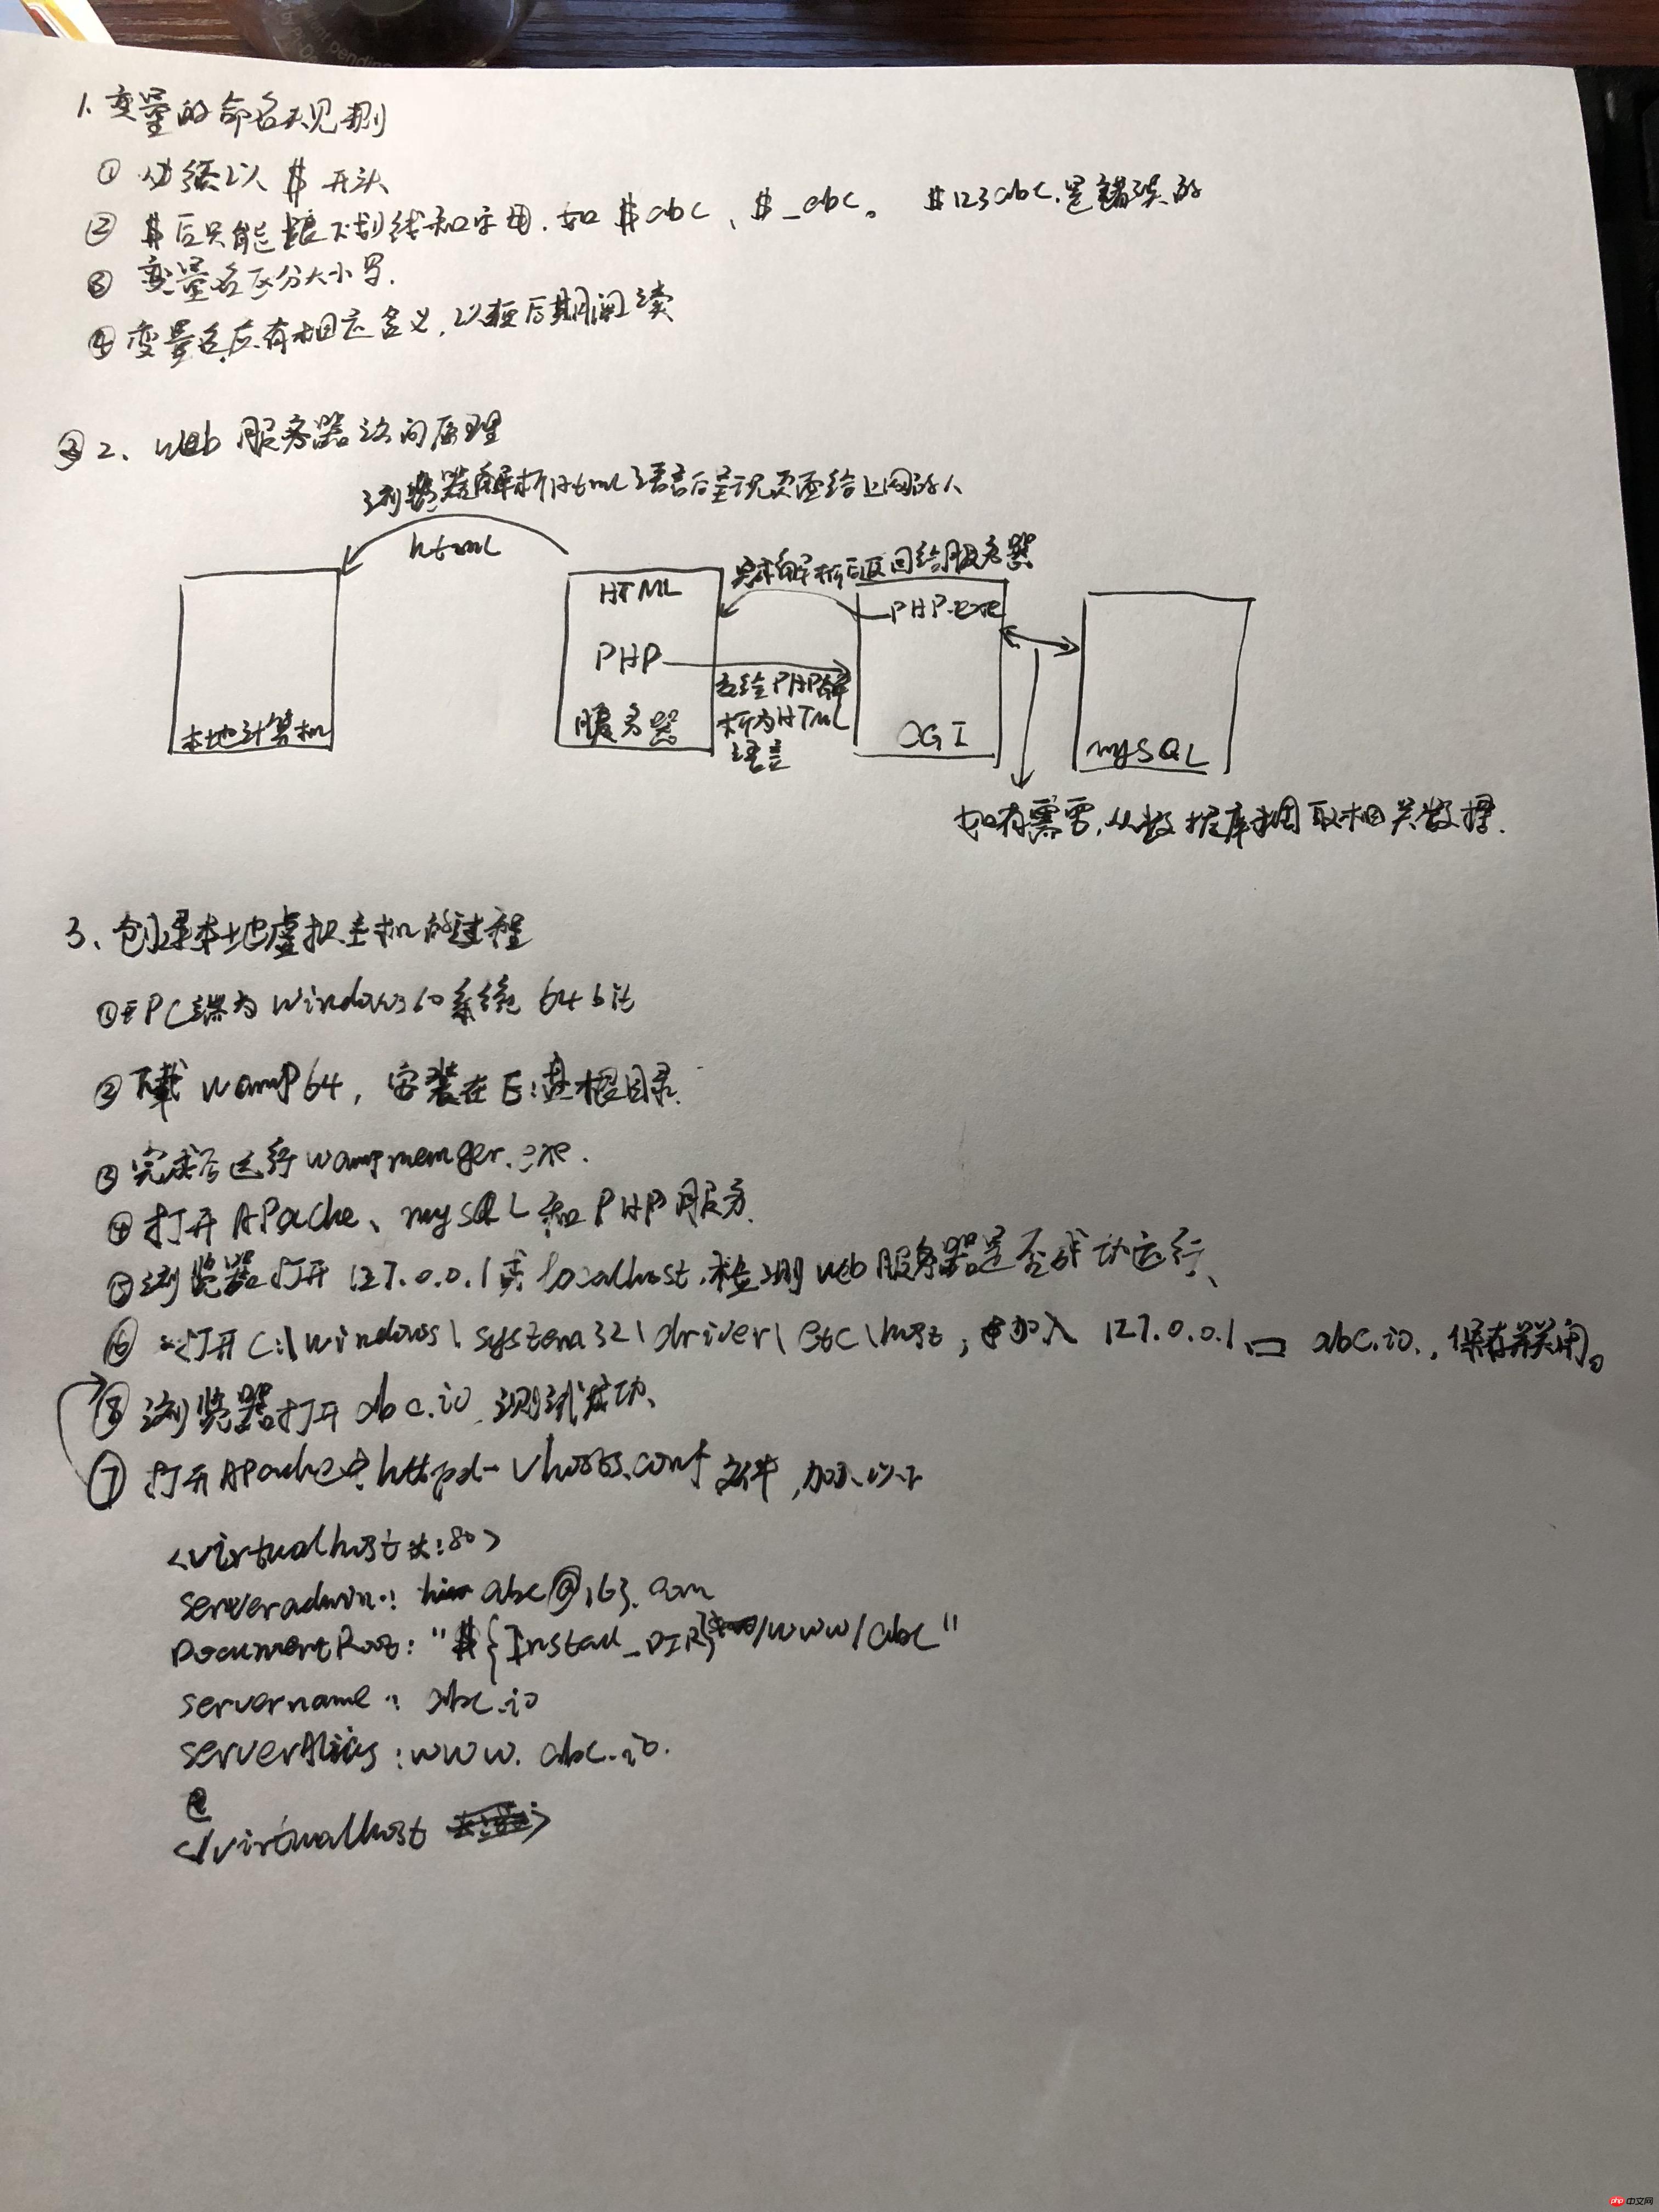 1. 变量的命名规则
① 必须以 $ 开头
② $后只能跟下划线和字母. 如 $abc、$_abc。 $123abc.是错误的
③ 变量名区分大小写.
④ 变量名应有相应含义, 以便后期阅读
2、web 服务器访问原理
浏览器解析html语言后呈现页面给上网的人
html
完成解析后返回给服务器
HTML
PHP.exe
PHP
去给PHP解
析为HTML
语言
本地计算机
服务器
CGI
mySQL
如有需要,从数据库调取相关数据.
3、创建本地虚拟主机的过程
① PC端为windows10系统 64bit
② 下载 wamp64, 安装在E:盘根目录.
③ 完成后运行wampmemger.exe.
④ 打开APache、mySQL和PHP服务.
⑤ 浏览器打开 127.0.0.1或localhost.检测web服务器是否成功运行、
⑥ 打开C:\windows\system32\driver\etc\host, 加入 127.0.0.1 abc.io., 保存并关闭。
⑧ 浏览器打开abc.io 测试成功、
⑦ 打开APache中httpd-vhosts.conf文件,加入以下
<virtualhost *:80>
serveradmin: abc@163.com
DocumentRoot: "${Install_DIR}/www/abc"
servername: abc.io
serverAlias: www.abc.io.
</virtualhost >
nt pending
php 中文网